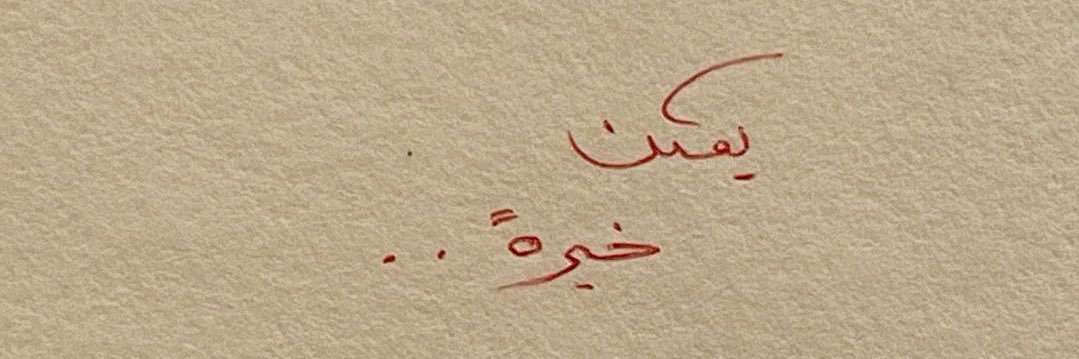 يمكن
خيرةً ..